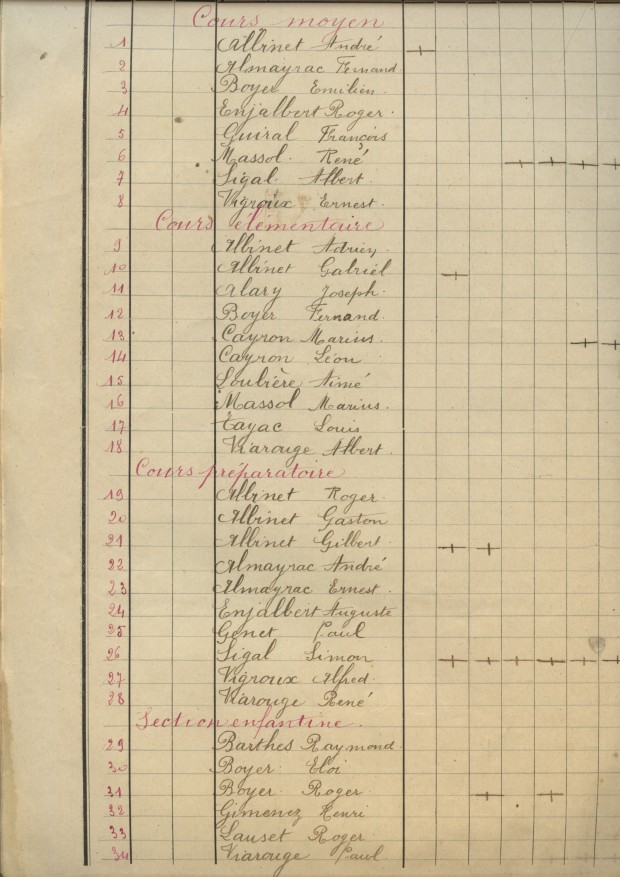 Cours moyen
1 Albinet André
2 Almayrac Fernand
3 Boyer Emilien
4 Enjalbert Roger
5 Guiral François
6 Massol René
7 Sigal Albert
8 Vigroux Ernest
Cours élémentaire
9 Albinet Adrien
10 Albinet Gabriel
11 Alary Joseph
12 Boyer Fernand
13 Cayron Marius
14 Cayron Léon
15 Loubière Aimé
16 Massol Marius
17 Tayac Louis
18 Viarouge Albert
Cours préparatoire
19 Albinet Roger
20 Albinet Gaston
21 Albinet Gilbert
22 Almayrac André
23 Almayrac Ernest
24 Enjalbert Auguste
25 Genet Paul
26 Sigal Simon
27 Vigroux Alfred
28 Viarouge René
Section enfantine.
29 Barthes Raymond
30 Boyer Eloi
31 Boyer Roger
32 Gimenez Henri
33 Lauset Roger
34 Viarouge Paul